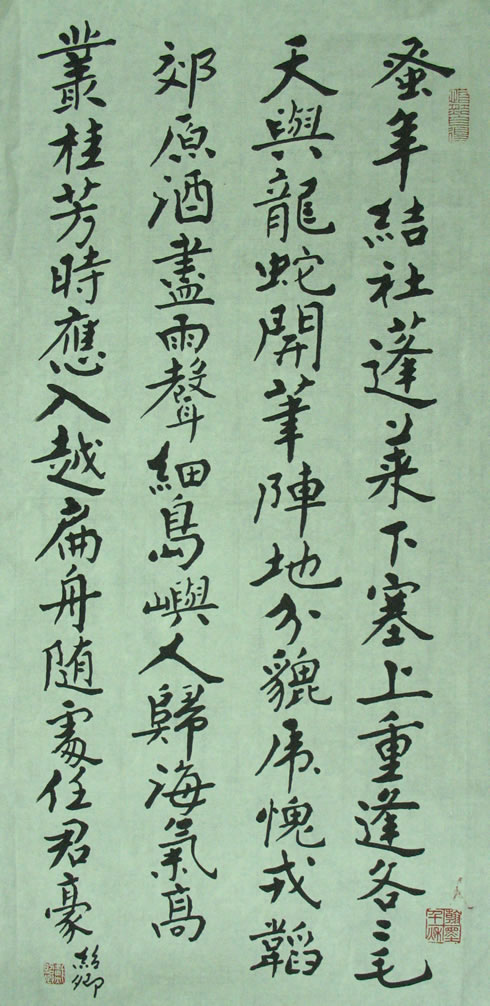 蚤年結社蓬萊下塞上重逢各二毛
天與龍蛇開筆陣地分貔虎愧戎韜
郊原酒盡雨聲細島嶼人歸海氣高
叢桂芳時應入越扁舟随處任君豪
卿